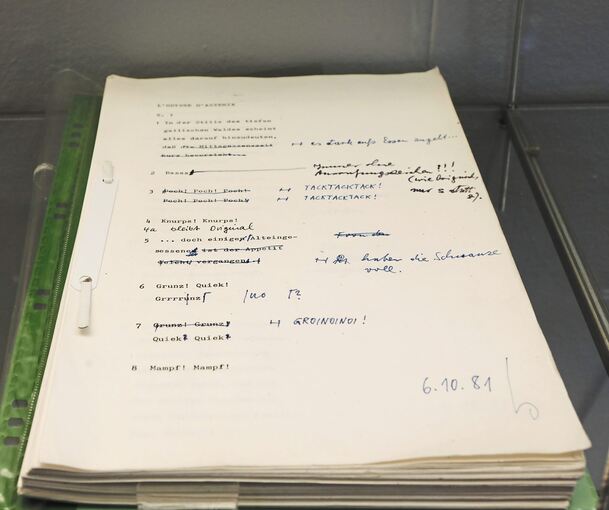 L'ODYSSE D'ASTERIX
S. 5
1 In der Stille des tiefen
gallischen Waldes scheint
alles darauf hinzudeuten,
daß die Mittagessenszeit
kurz bevorsteht...
es stark aufs Essen angeht...
2
Immer ohne
Ausrufungszeichen!!!
(wie Original,
nur s statt
z).
3 Poch! Poch! Poch! TACKTACKTACK!
Poch! Poch! Poch! TACKTACKTACK!
4 Knurps! Knurps!
4a bleibt Original
5 ... doch einigen Alteinge-
sessenen ist der Appetit
vergangen!
haben die Schnauze
voll.
6 Grunz! Quiek!
Grrrrunz
7 Grunz! Grunz! GROINOINOI!
Quiek? Quiek?
8 Mampf! Mampf!
6.10.81